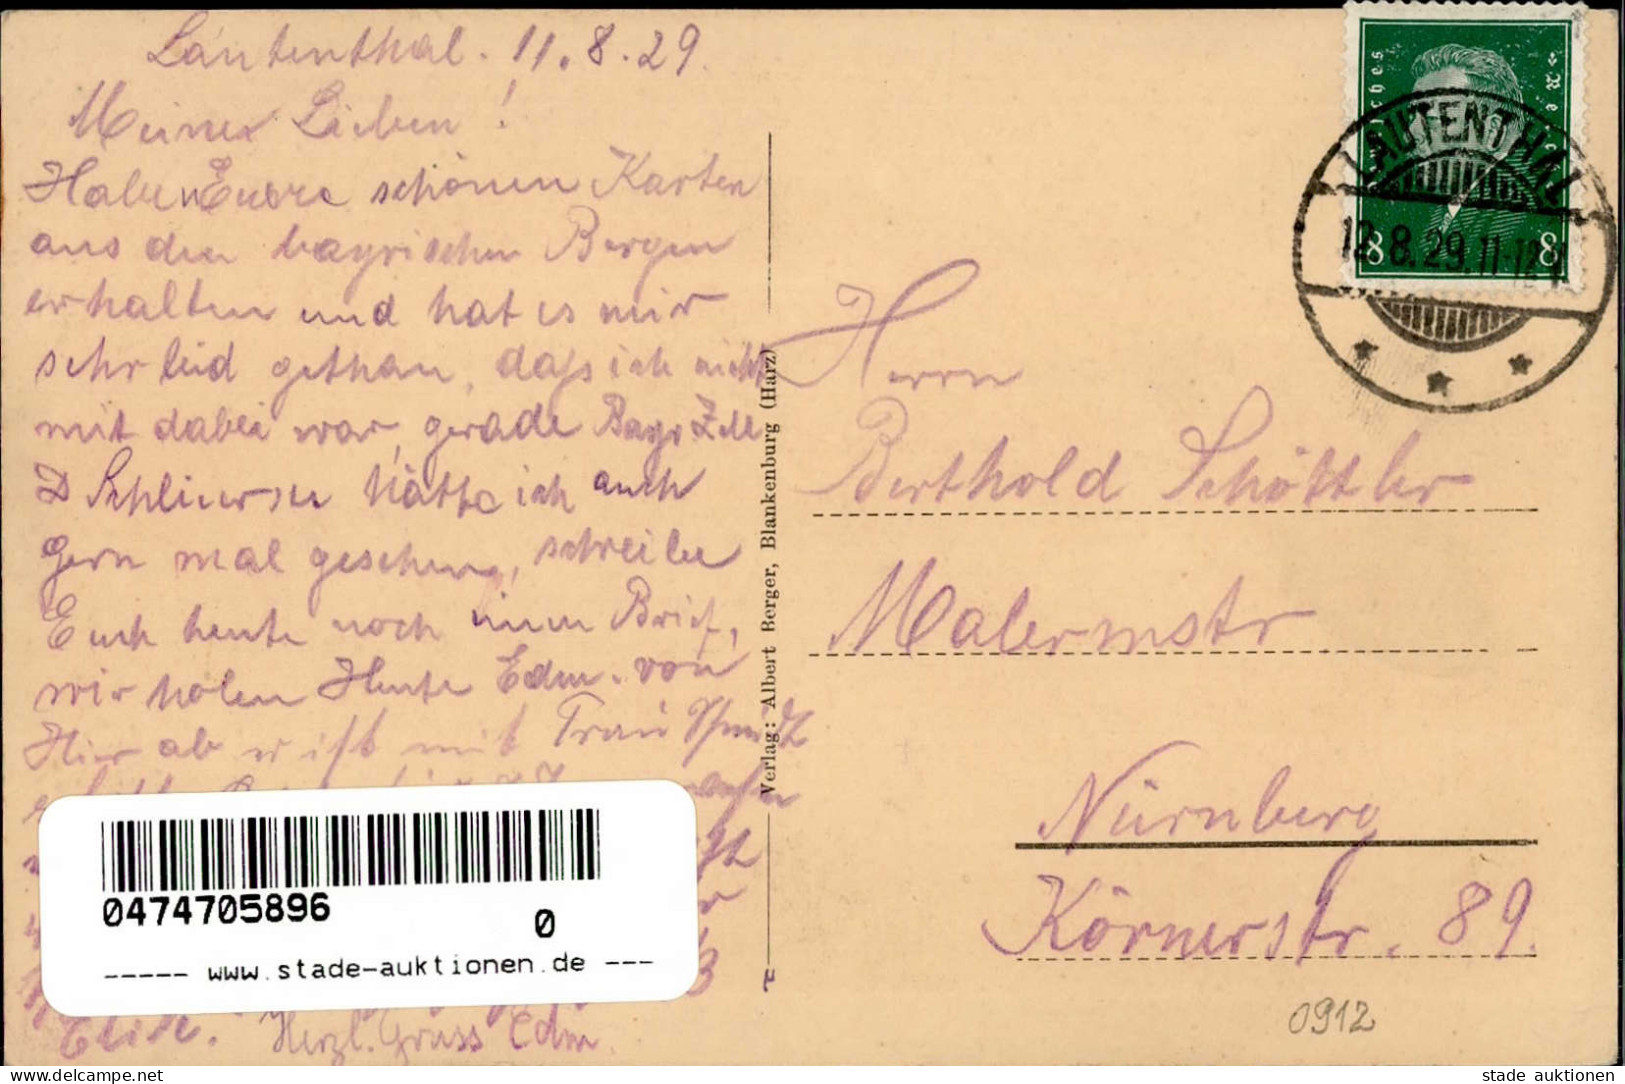 Lautenthal. 11.8.29.
Meine Lieben!
Haben Euere schönen Karten
aus den bayrischen Bergen
erhalten und hat es mir
sehr leid gethan, daß ich nicht
mit dabei war, gerade Bayr. Zell
Schliersee hätte ich auch
gern mal gesehen, schreibe
Euch heute noch einen Brief,
wir holen Heute Edm. von
Hier ab er ist mit Frau
Elise. Herzl. Gruss Edm.
Verlag: Albert Berger, Blankenburg (Harz)
Deutsches Reich
8 8
LAUTENTHAL
12.8.29.11-12V
Herrn
Berthold Schöttler
Malermstr
Nürnberg
Körnerstr. 89.
0912
0474705896
0
----- www.stade-auktionen.de ---
www.delcampe.net
stade auktionen